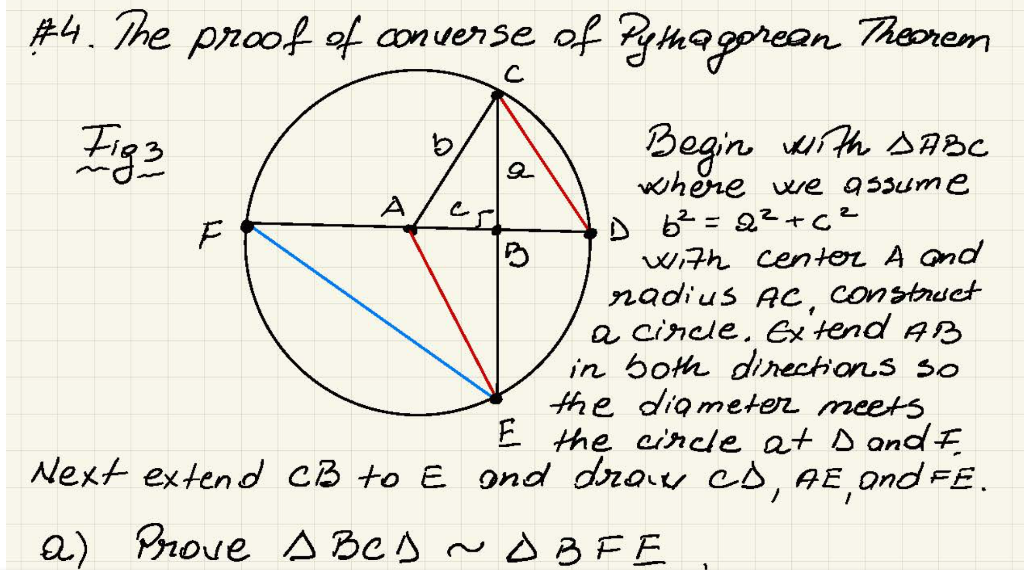 #4. The proof of converse of Pythagorean Theorem
C
Fig 3
b
a
Begin with △ABC
where we assume
A
c
F
B
D
b² = a² + c²
with center A and
radius AC, construct
a circle. Extend AB
in both directions so
the diameter meets
E
the circle at D and F.
Next extend CB to E and draw CD, AE, and FE.
a) Prove △BCD ~ △BFE.